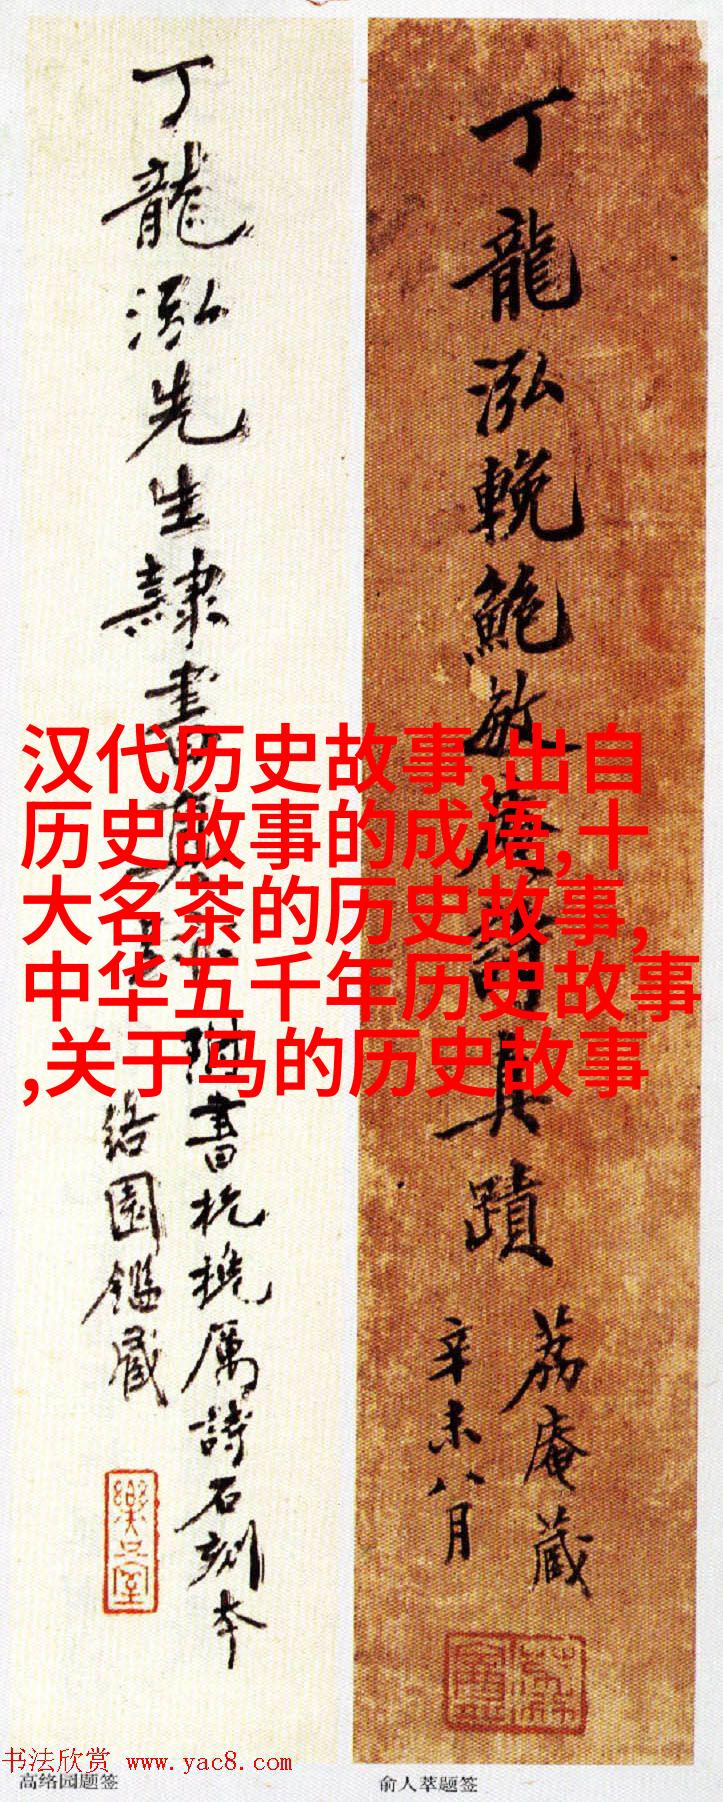 丁龍泓輓鮑敏庵詩真蹟
荔庵藏
辛未八月
丁龍泓先生隸書真跡
附書杭
厲詩石刻本
絡園鑑藏
樂只室
汉代历史故事,出自
历史故事的成语,十
大名茶的历史故事,
中华五千年历史故事
,关于马的历史故事
书法欣赏 www.yac8.com
高络园题签
俞人萃题签